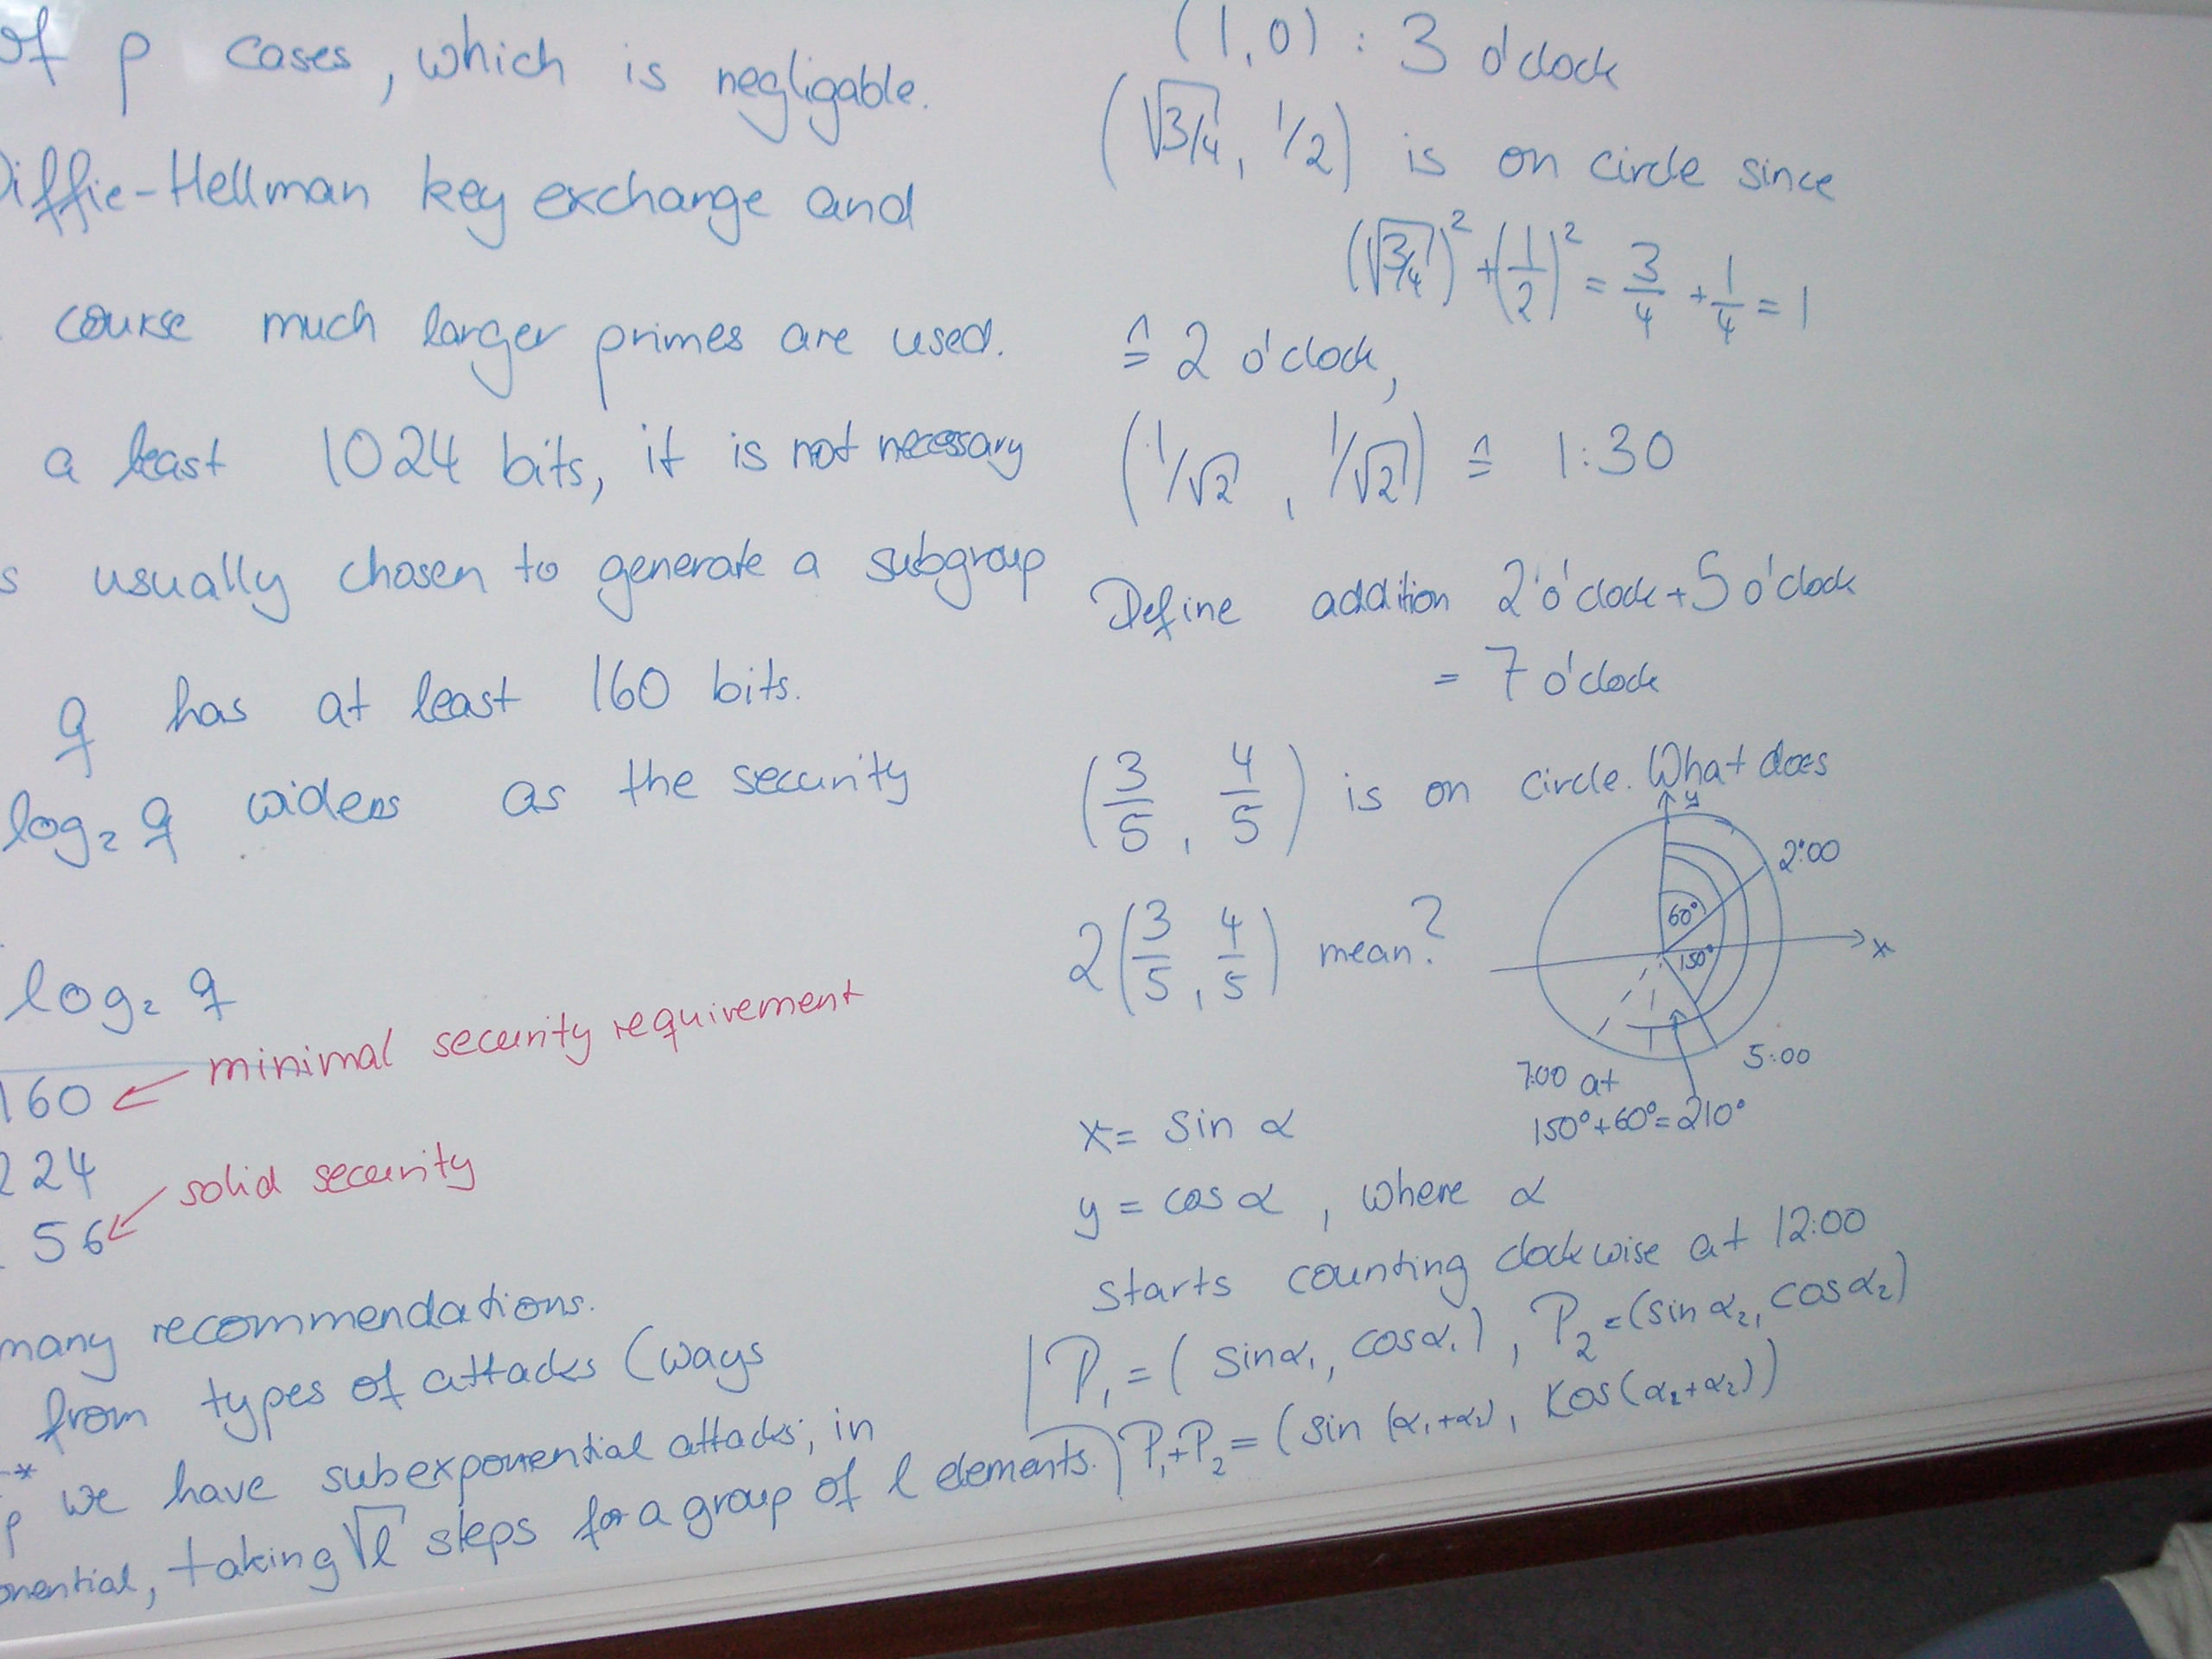 of p cases, which is negligable.
Diffie-Hellman key exchange and
course much larger primes are used.
a least 1024 bits, it is not necessary
s usually chosen to generate a subgroup
q has at least 160 bits.
log₂ q widens as the security
log₂ q
160 ← minimal security requirement
224
56 ← solid security
many recommendations.
from types of attacks (ways
* p we have subexponential attacks; in
onential, taking √l steps for a group of l elements.)
(1,0) : 3 o'clock
(√3/4, 1/2) is on circle since
(√3/4)² + (1/2)² = 3/4 + 1/4 = 1
≙ 2 o'clock,
(1/√2, 1/√2) ≙ 1:30
Define addition 2 o'clock + 5 o'clock
= 7 o'clock
(3/5, 4/5) is on circle. What does
2(3/5, 4/5) mean?
y
2:00
60°
x
150°
5:00
7:00 at
150°+60°=210°
x = sin α
y = cos α, where α
starts counting clockwise at 12:00
P₁ = (sin α₁, cos α₁), P₂ = (sin α₂, cos α₂)
P₁+P₂ = (sin (α₁+α₂), cos(α₂+α₂))